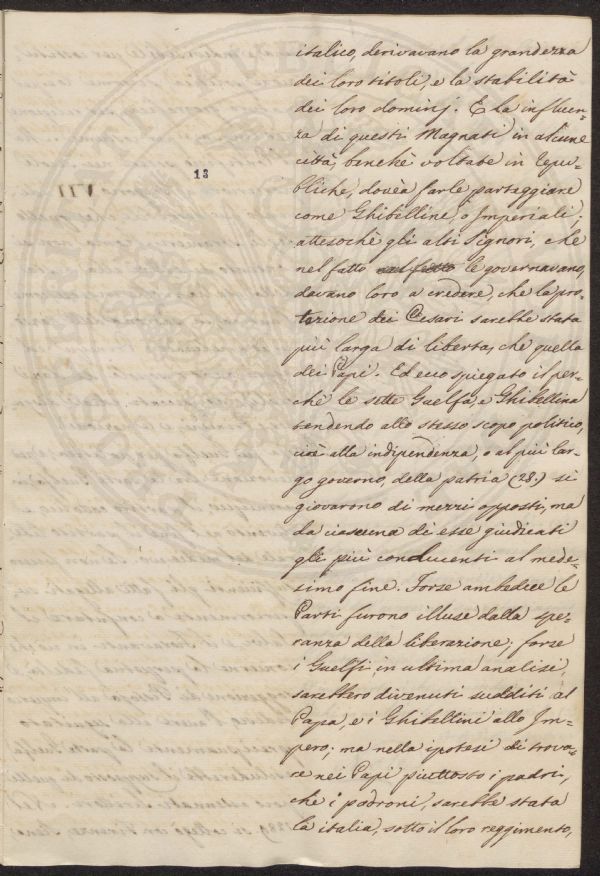 italico, derivavano la grandezza
dei loro titoli, e la stabilità
dei loro dominj. E la influen=
za di questi Magnati in alcune
città, benchè voltate in Repu=
bliche, dovèa farle parteggiare
come Ghibelline, o Imperiali;
attesochè gli alti Signori, che
nel fatto nel fatto le governavano,
davano loro a credere, che la pro=
tezione dei Cesari sarebbe stata
più larga di libertà, che quella
dei Papi. Ed ecco spiegato il per=
chè le sette Guelfa, e Ghibellina
tendendo allo stesso scopo politico,
cioè alla indipendenza, o al più lar=
go governo, della patria (28.) si
giovarono di mezzi opposti, ma
da ciascuna di esse giudicati
gli più conducenti al mede=
simo fine. Forze ambedue le
Parti furono illuse dalla spe=
ranza della liberazione; forse
i Guelfi, in ultima analisi,
sarebbero divenuti sudditi al
Papa, e i Ghibellini allo Im=
pero; ma nella ipotesi di trova=
re nei Papi piuttosto i padri,
che i padroni, sarebbe stata
la italia, sotto il loro reggimento,
13